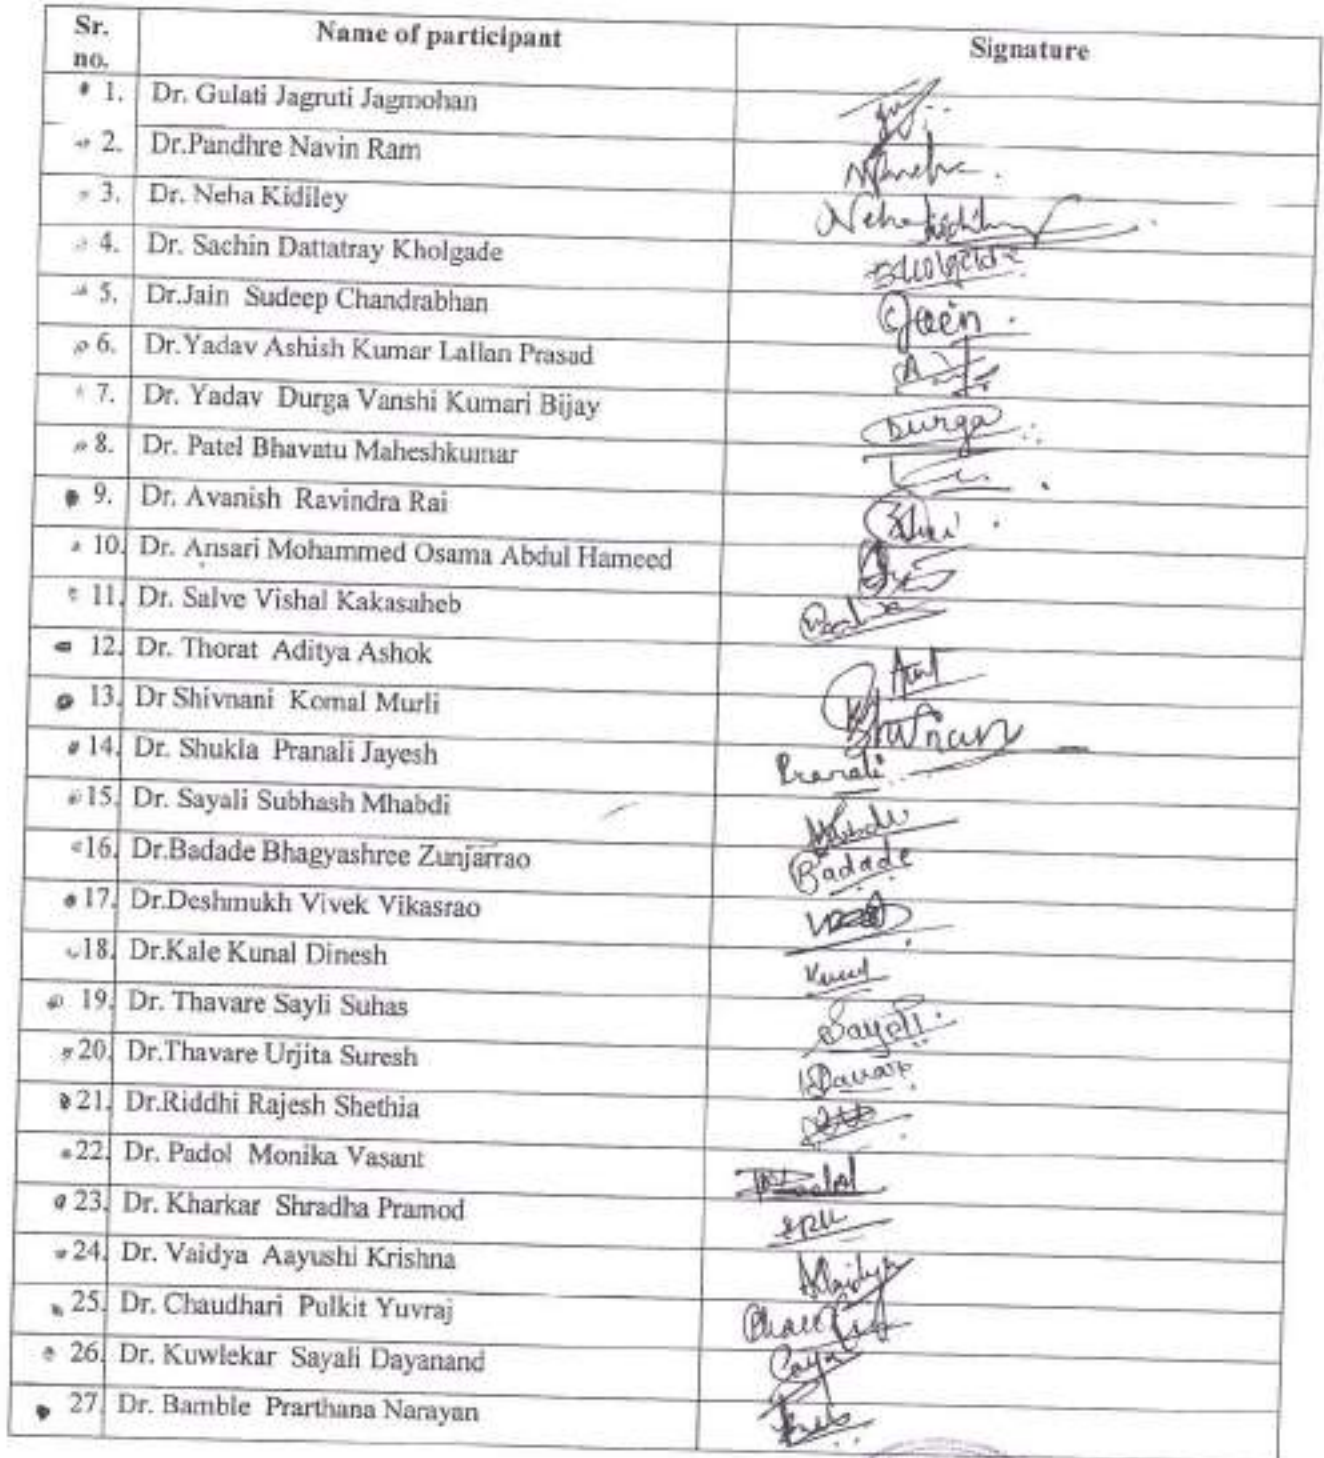 Sr. no. Name of participant Signature
1. Dr. Gulati Jagruti Jagmohan
2. Dr.Pandhre Navin Ram
3. Dr. Neha Kidiley Neha
4. Dr. Sachin Dattatray Kholgade
5. Dr.Jain Sudeep Chandrabhan
6. Dr.Yadav Ashish Kumar Lallan Prasad
7. Dr. Yadav Durga Vanshi Kumari Bijay Durga
8. Dr. Patel Bhavatu Maheshkumar
9. Dr. Avanish Ravindra Rai
10. Dr. Ansari Mohammed Osama Abdul Hameed
11. Dr. Salve Vishal Kakasaheb
12. Dr. Thorat Aditya Ashok
13. Dr Shivnani Komal Murli
14. Dr. Shukla Pranali Jayesh Pranali
15. Dr. Sayali Subhash Mhabdi
16. Dr.Badade Bhagyashree Zunjarrao Badade
17. Dr.Deshmukh Vivek Vikasrao
18. Dr.Kale Kunal Dinesh
19. Dr. Thavare Sayli Suhas
20. Dr.Thavare Urjita Suresh
21. Dr.Riddhi Rajesh Shethia
22. Dr. Padol Monika Vasant
23. Dr. Kharkar Shradha Pramod
24. Dr. Vaidya Aayushi Krishna
25. Dr. Chaudhari Pulkit Yuvraj
26. Dr. Kuwlekar Sayali Dayanand
27. Dr. Bamble Prarthana Narayan